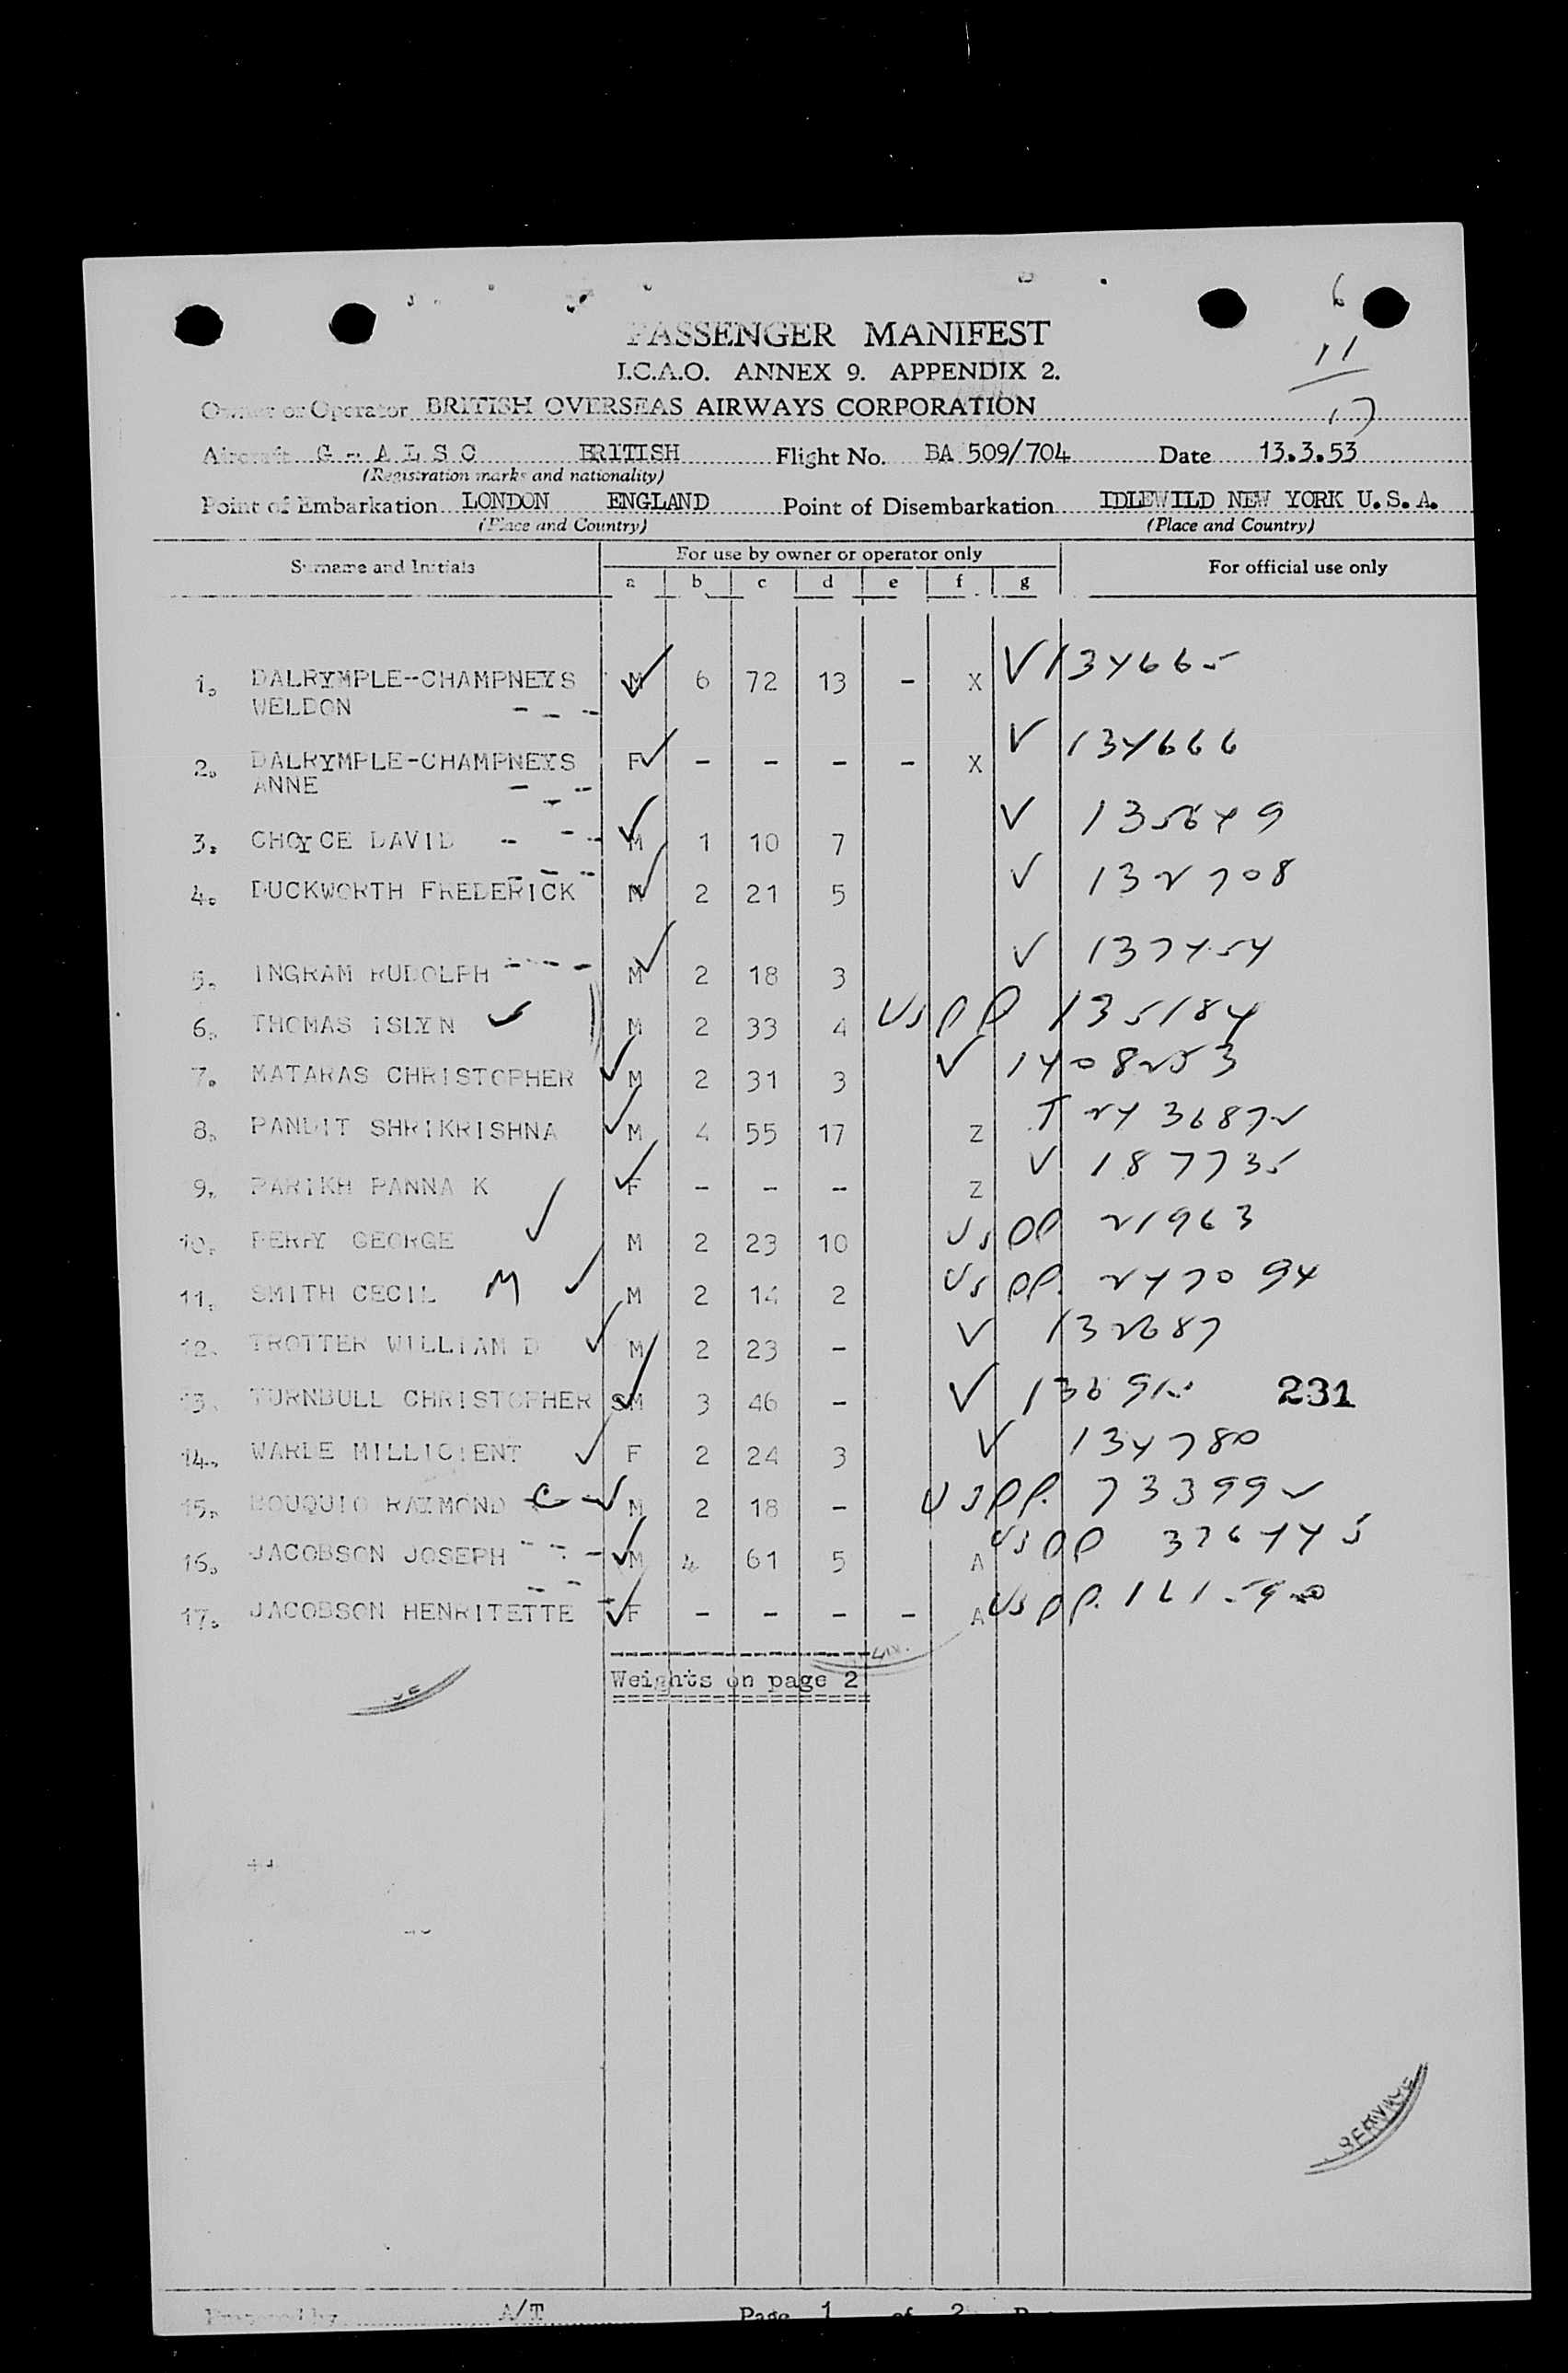 6
11
17
PASSENGER MANIFEST
I.C.A.O. ANNEX 9. APPENDIX 2.
Owner or Operator BRITISH OVERSEAS AIRWAYS CORPORATION
Aircraft G - A L S C BRITISH Flight No. BA 509/704 Date 13.3.53
(Registration marks and nationality)
Point of Embarkation LONDON ENGLAND Point of Disembarkation IDLEWILD NEW YORK U.S.A.
(Place and Country) (Place and Country)
Surname and Initials For use by owner or operator only For official use only
a b c d e f g
1. DALRYMPLE-CHAMPNEYS M 6 72 13 - X V 134665
WELDON - - -
2. DALRYMPLE-CHAMPNEYS F - - - - X V 134666
ANNE - - -
3. CHOYCE DAVID - - - M 1 10 7 V 135649
4. DUCKWORTH FREDERICK M 2 21 5 V 132708
5. INGRAM RUDOLPH - - - - M 2 18 3 V 137454
6. THOMAS ISLYN M 2 33 4 US PP 135184
7. MATARAS CHRISTOPHER M 2 31 3 V 1408253
8. PANDIT SHRIKRISHNA M 4 55 17 Z T 2436872
9. PARIKH PANNA K F - - - Z V 187735
10. PERRY GEORGE M 2 23 10 US PP 21963
11. SMITH CECIL M M 2 14 2 US PP. 247094
12. TROTTER WILLIAM D M 2 23 - V 132687
13. TURNBULL CHRISTOPHER SM 3 46 - V 231
14. WARDE MILLICIENT F 2 24 3 V 134780
15. BOUQUIO RAYMOND C - M 2 18 - US PP. 733992
16. JACOBSON JOSEPH - - - - M 4 61 5 A US PP 326445
17. JACOBSON HENRITETTE F - - - - A US PP.
Weights on page 2
SERVICE
Prepared by A/T Page 1 of 2